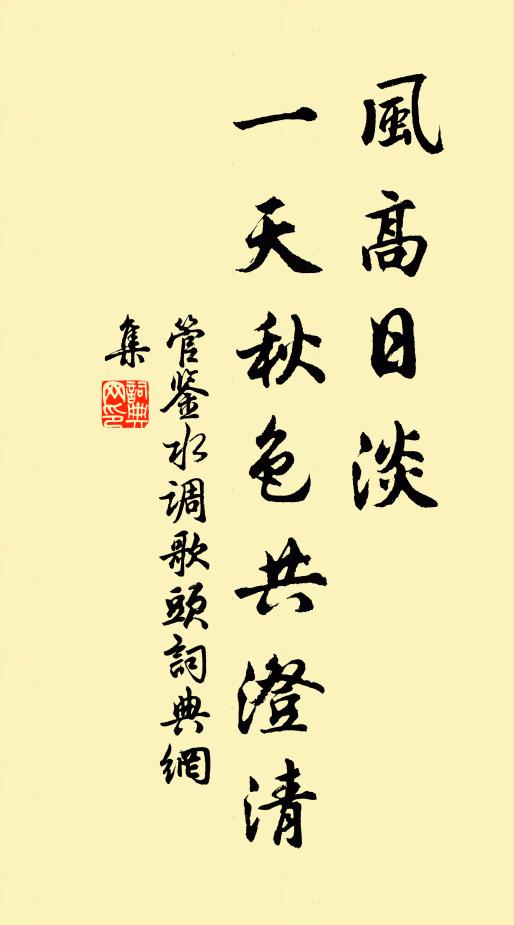 風高日淡
一天秋色共澄清
管鉴水调歌頭詞典網
集
詞典
网印